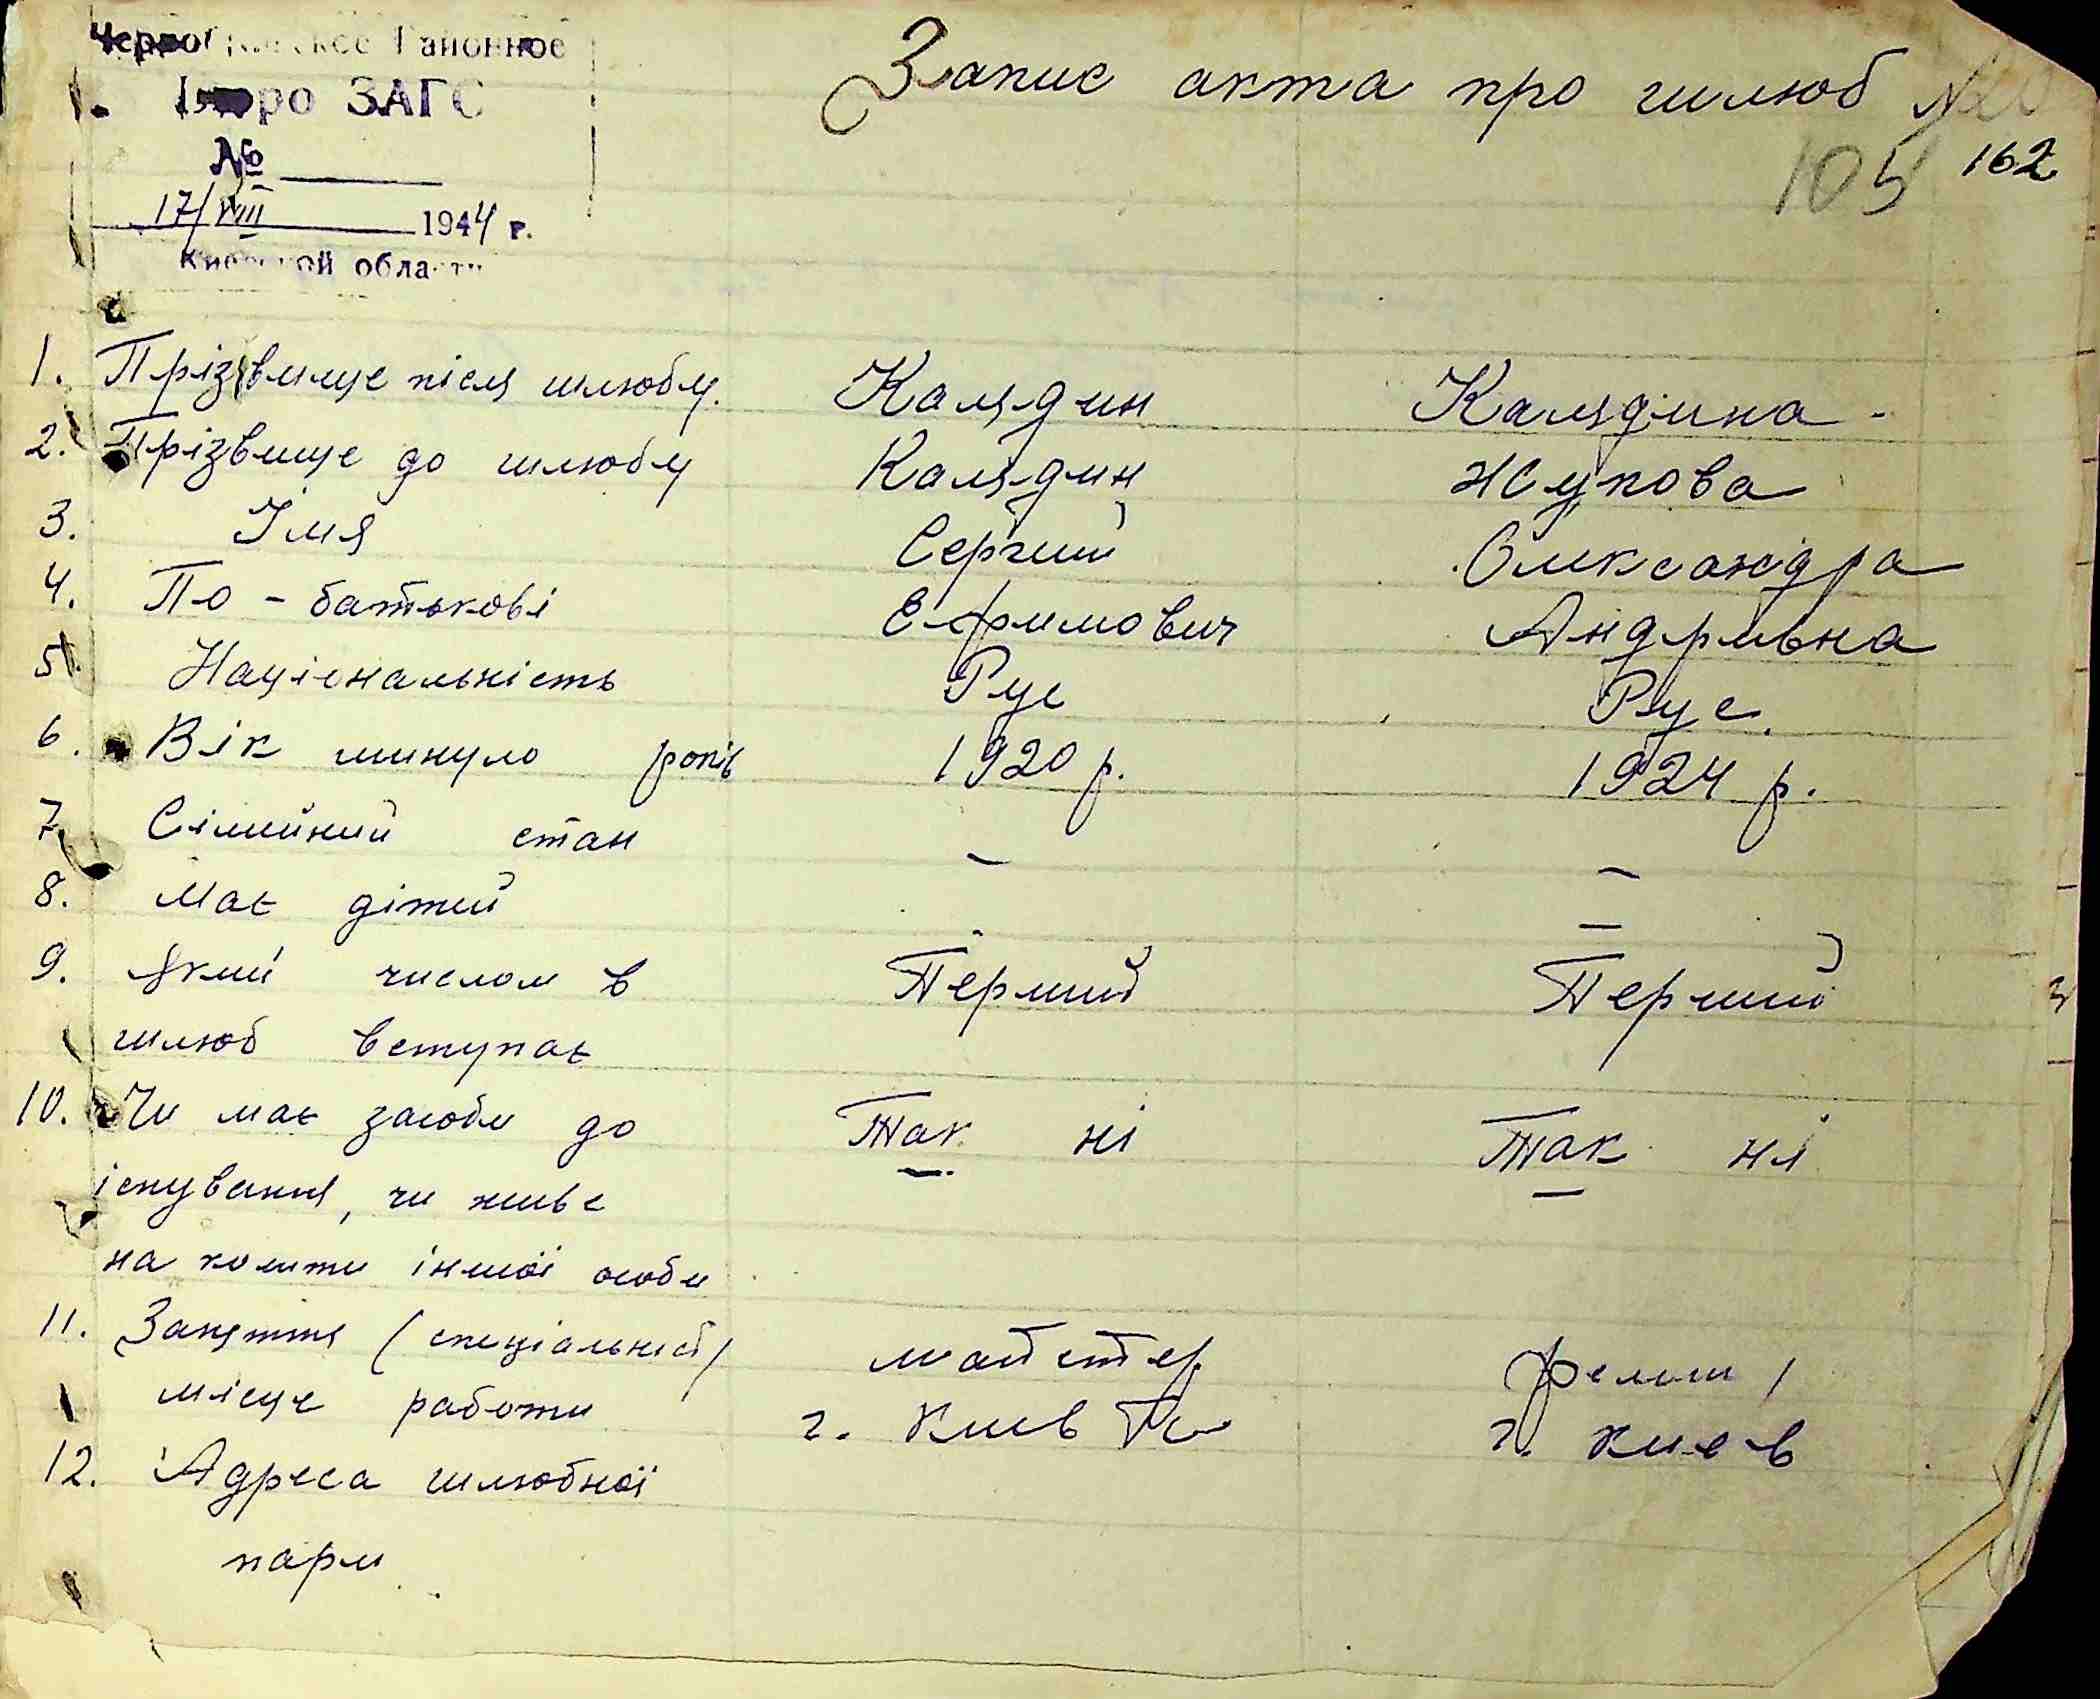 Районное
Бюро ЗАГС
№
17/VIII 1944 г.
Киевской области
Запис акта про шлюб №20
105 162
1. Прізвище після шлюбу. Калядин Калядина -
2. Прізвище до шлюбу Калядин Жукова
3. Імя Сергий Олександра
4. По - батькові Ефимович Андріївна
5. Національність Рус Рус.
6. Вік минуло років 1920 р. 1924 р.
7. Сімийний стан - -
8. Має дітий - -
9. Який числом в Перший Перший
шлюб вступає
10. Чи має засоби до Так ні Так ні
існування, чи живе
на кошти іншої особи
11. Заняття (спеціальність) майстер
місце работи г. Киев г. Киев
12. Адреса шлюбної
пари